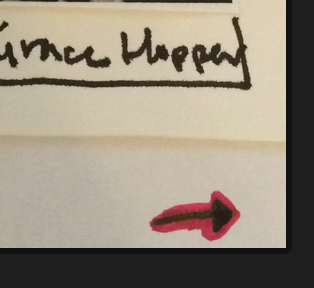 Grace Hopper